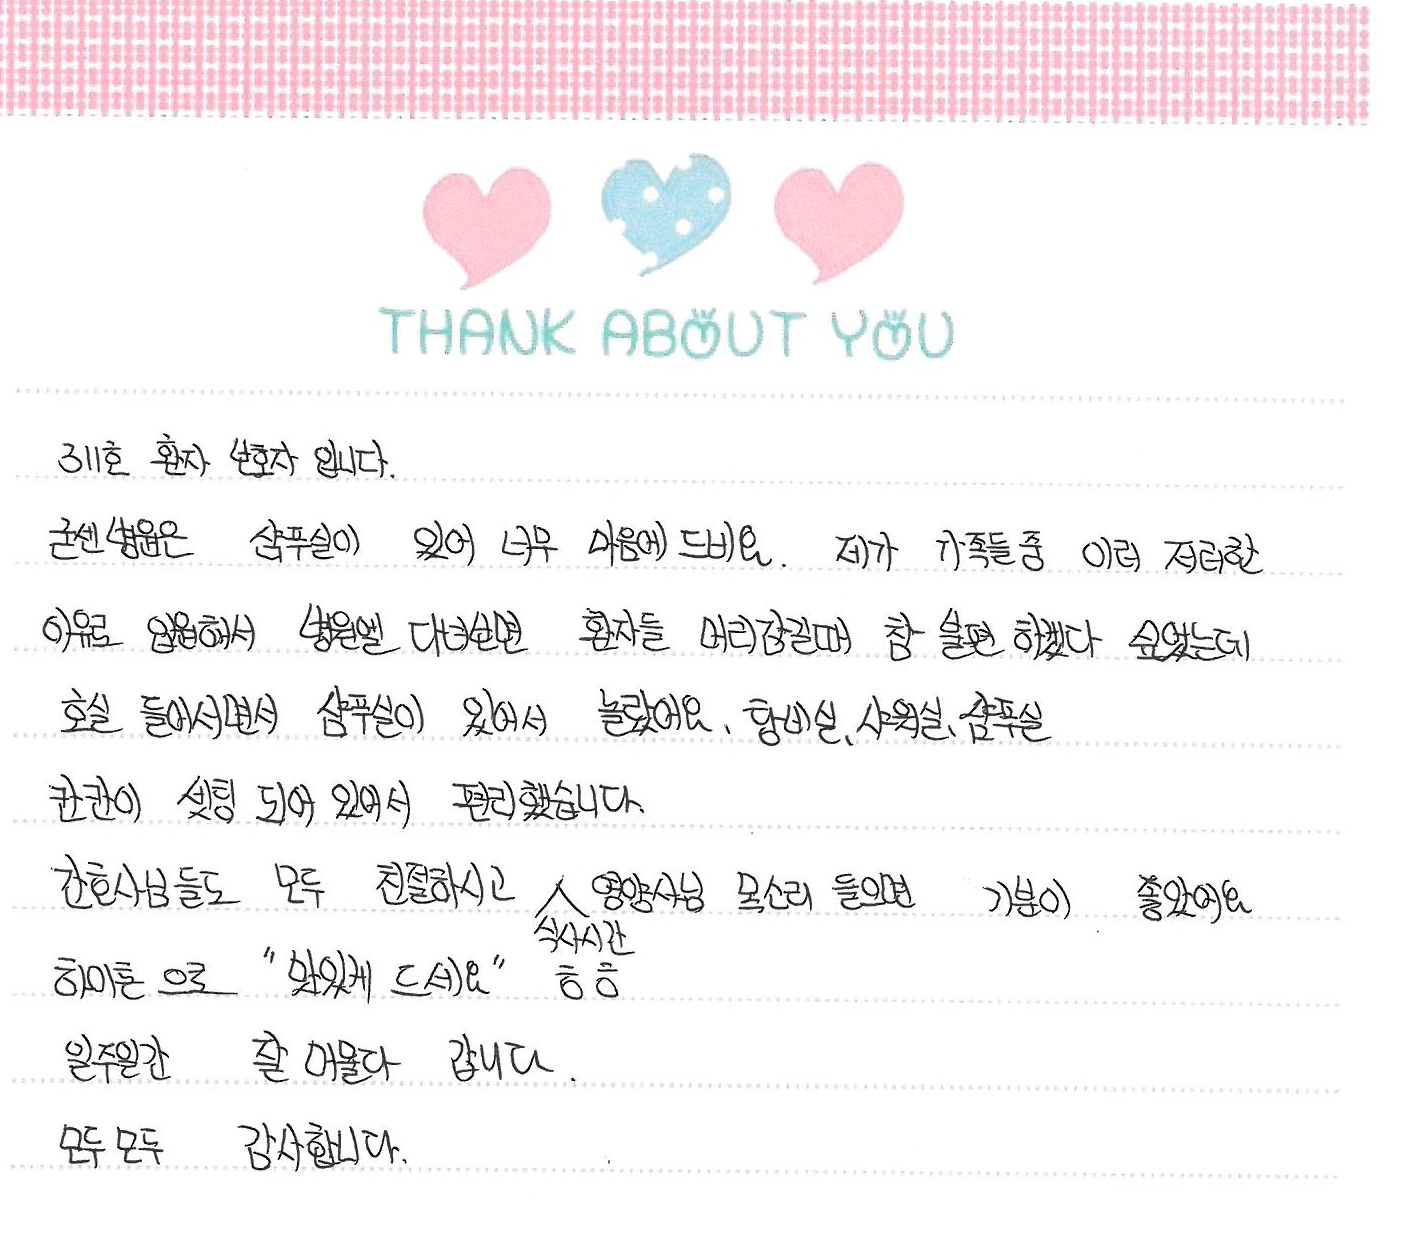 THANK ABOUT YOU
311호 환자 보호자 입니다.
굳센병원은 샴푸실이 있어 너무 마음에 드네요. 제가 가족들중 이러 저러한
이유로 입원해서 병원엘 다녀보면 환자들 머리감길때 참 불편 하겠다 싶었는데
호실 들어서면서 샴푸실이 있어서 놀랐어요. 탕비실, 샤워실, 샴푸실
칸칸이 셋팅 되어 있어서 편리했습니다.
간호사님들도 모두 친절하시고 식사시간 영양사님 목소리 들으면 기분이 좋았어요
하이톤 으로 "맛있게 드세요" ㅎㅎ
일주일간 잘 머물다 갑니다.
모두모두 감사합니다.